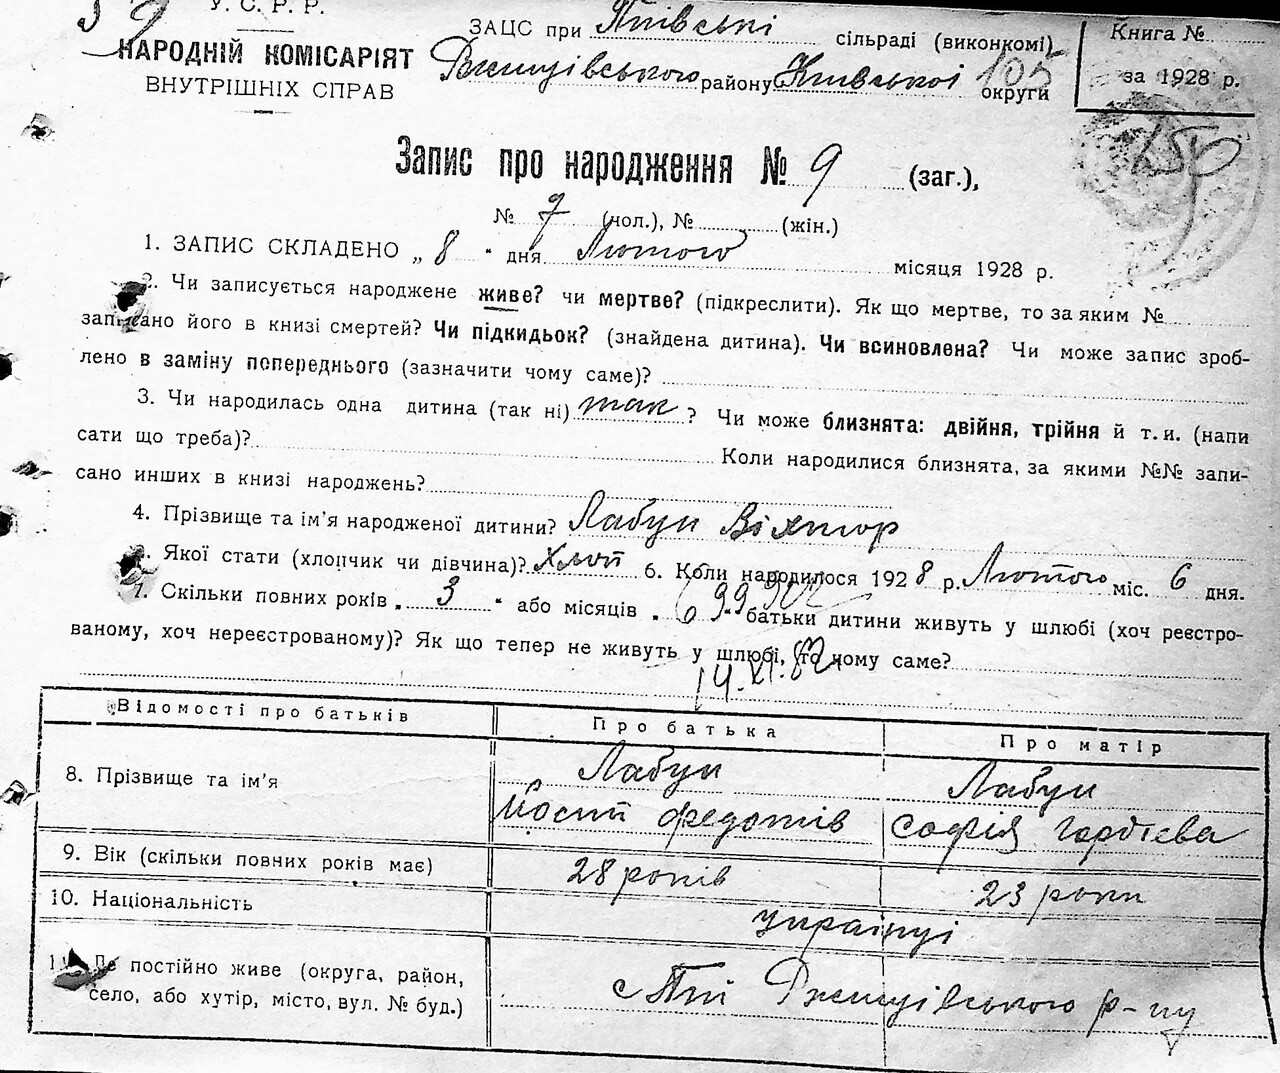 У. С. Р. Р.
НАРОДНІЙ КОМІСАРІЯТ
ВНУТРІШНІХ СПРАВ
ЗАЦС при Пиївські сільраді (виконкомі)
Ржищівського району Київської округи 105
Книга №
за 1928 р.
Запис про народження № 9 (заг.),
№ 7 (чол.), № (жін.)
1. ЗАПИС СКЛАДЕНО „ 8 “ дня Лютого місяця 1928 р.
2. Чи записується народжене живе? чи мертве? (підкреслити). Як що мертве, то за яким №
записано його в книзі смертей? Чи підкидьок? (знайдена дитина). Чи всиновлена? Чи може запис зроб-
лено в заміну попереднього (зазначити чому саме)?
3. Чи народилась одна дитина (так ні) так ? Чи може близнята: двійня, трійня й т. и. (напи
сати що треба)? Коли народилися близнята, за якими №№ запи-
сано инших в книзі народжень?
4. Прізвище та ім’я народженої дитини? Лабун Віктор
Якої стати (хлопчик чи дівчина)? хлоп 6. Коли народилося 1928 р. Лютого міс. 6 дня.
7. Скільки повних років „ 3 “ або місяців „ “ батьки дитини живуть у шлюбі (хоч реєстро-
ваному, хоч нереєстрованому)? Як що тепер не живуть у шлюбі, то чому саме?
14.XI.82
Відомості про батьків Про батька Про матір
8. Прізвище та ім’я Лабун Лабун
Йосип Федотів Софія Гордієва
9. Вік (скільки повних років має) 28 років 23 роки
10. Національність українці
11. Де постійно живе (округа, район,
село, або хутір, місто, вул. № буд.) с Пиї Ржищівського р-ну